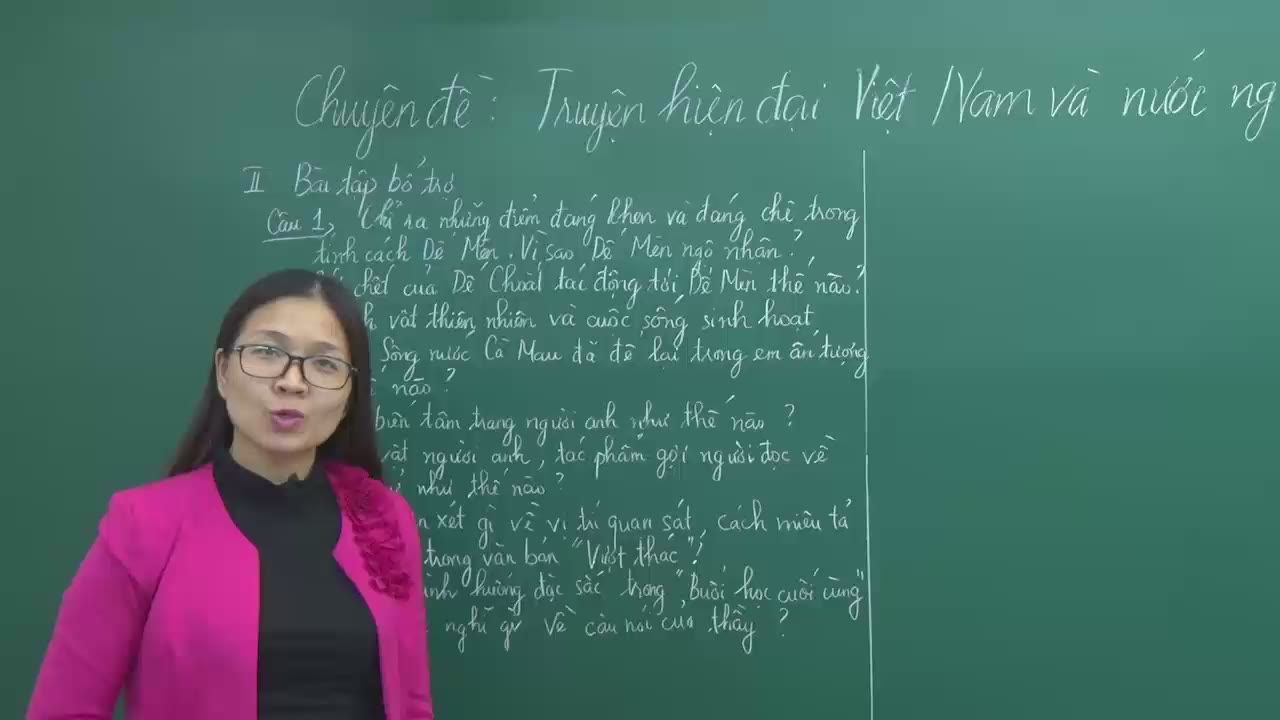 Chuyên đề : Truyện hiện đại Việt Nam và nước ng
II Bài tập bổ trợ
Câu 1, Chỉ ra những điểm đáng khen và đáng chê trong
tính cách Dế Mèn. Vì sao Dế Mèn ngộ nhận ?
chết của Dế Choắt tác động tới Dế Mèn thế nào ?
vật thiên nhiên và cuộc sống sinh hoạt
Sông nước Cà Mau đã để lại trong em ấn tượng
nào ?
biến tâm trạng người anh như thế nào ?
vật người anh, tác phẩm gợi người đọc về
như thế nào ?
xét gì về vị trí quan sát, cách miêu tả
trong văn bản "Vượt thác" ?
hướng đặc sắc trong "Buổi học cuối cùng"
nghĩ gì về câu nói của thầy ?